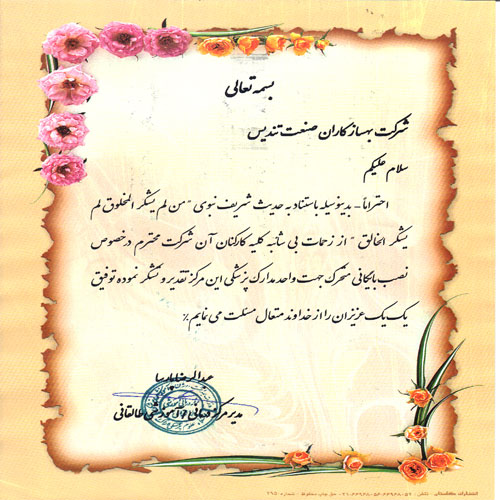 بسمه تعالی
شرکت بهسازکاران صنعت تندیس
سلام علیکم
احتراماً - بدینوسیله باستناد به حدیث شریف نبوی " من لم یشکر المخلوق لم
یشکر الخالق " از زحمات بی شائبه کلیه کارکنان آن شرکت محترم درخصوص
نصب بایگانی متحرک جهت واحد مدارک پزشکی این مرکز تقدیر و تشکر نموده توفیق
یک یک عزیزان را از خداوند متعال مسئلت می نمایم٪
عبدالرضا پارسا
مدیر مرکز درمانی آموزشی طالقانی